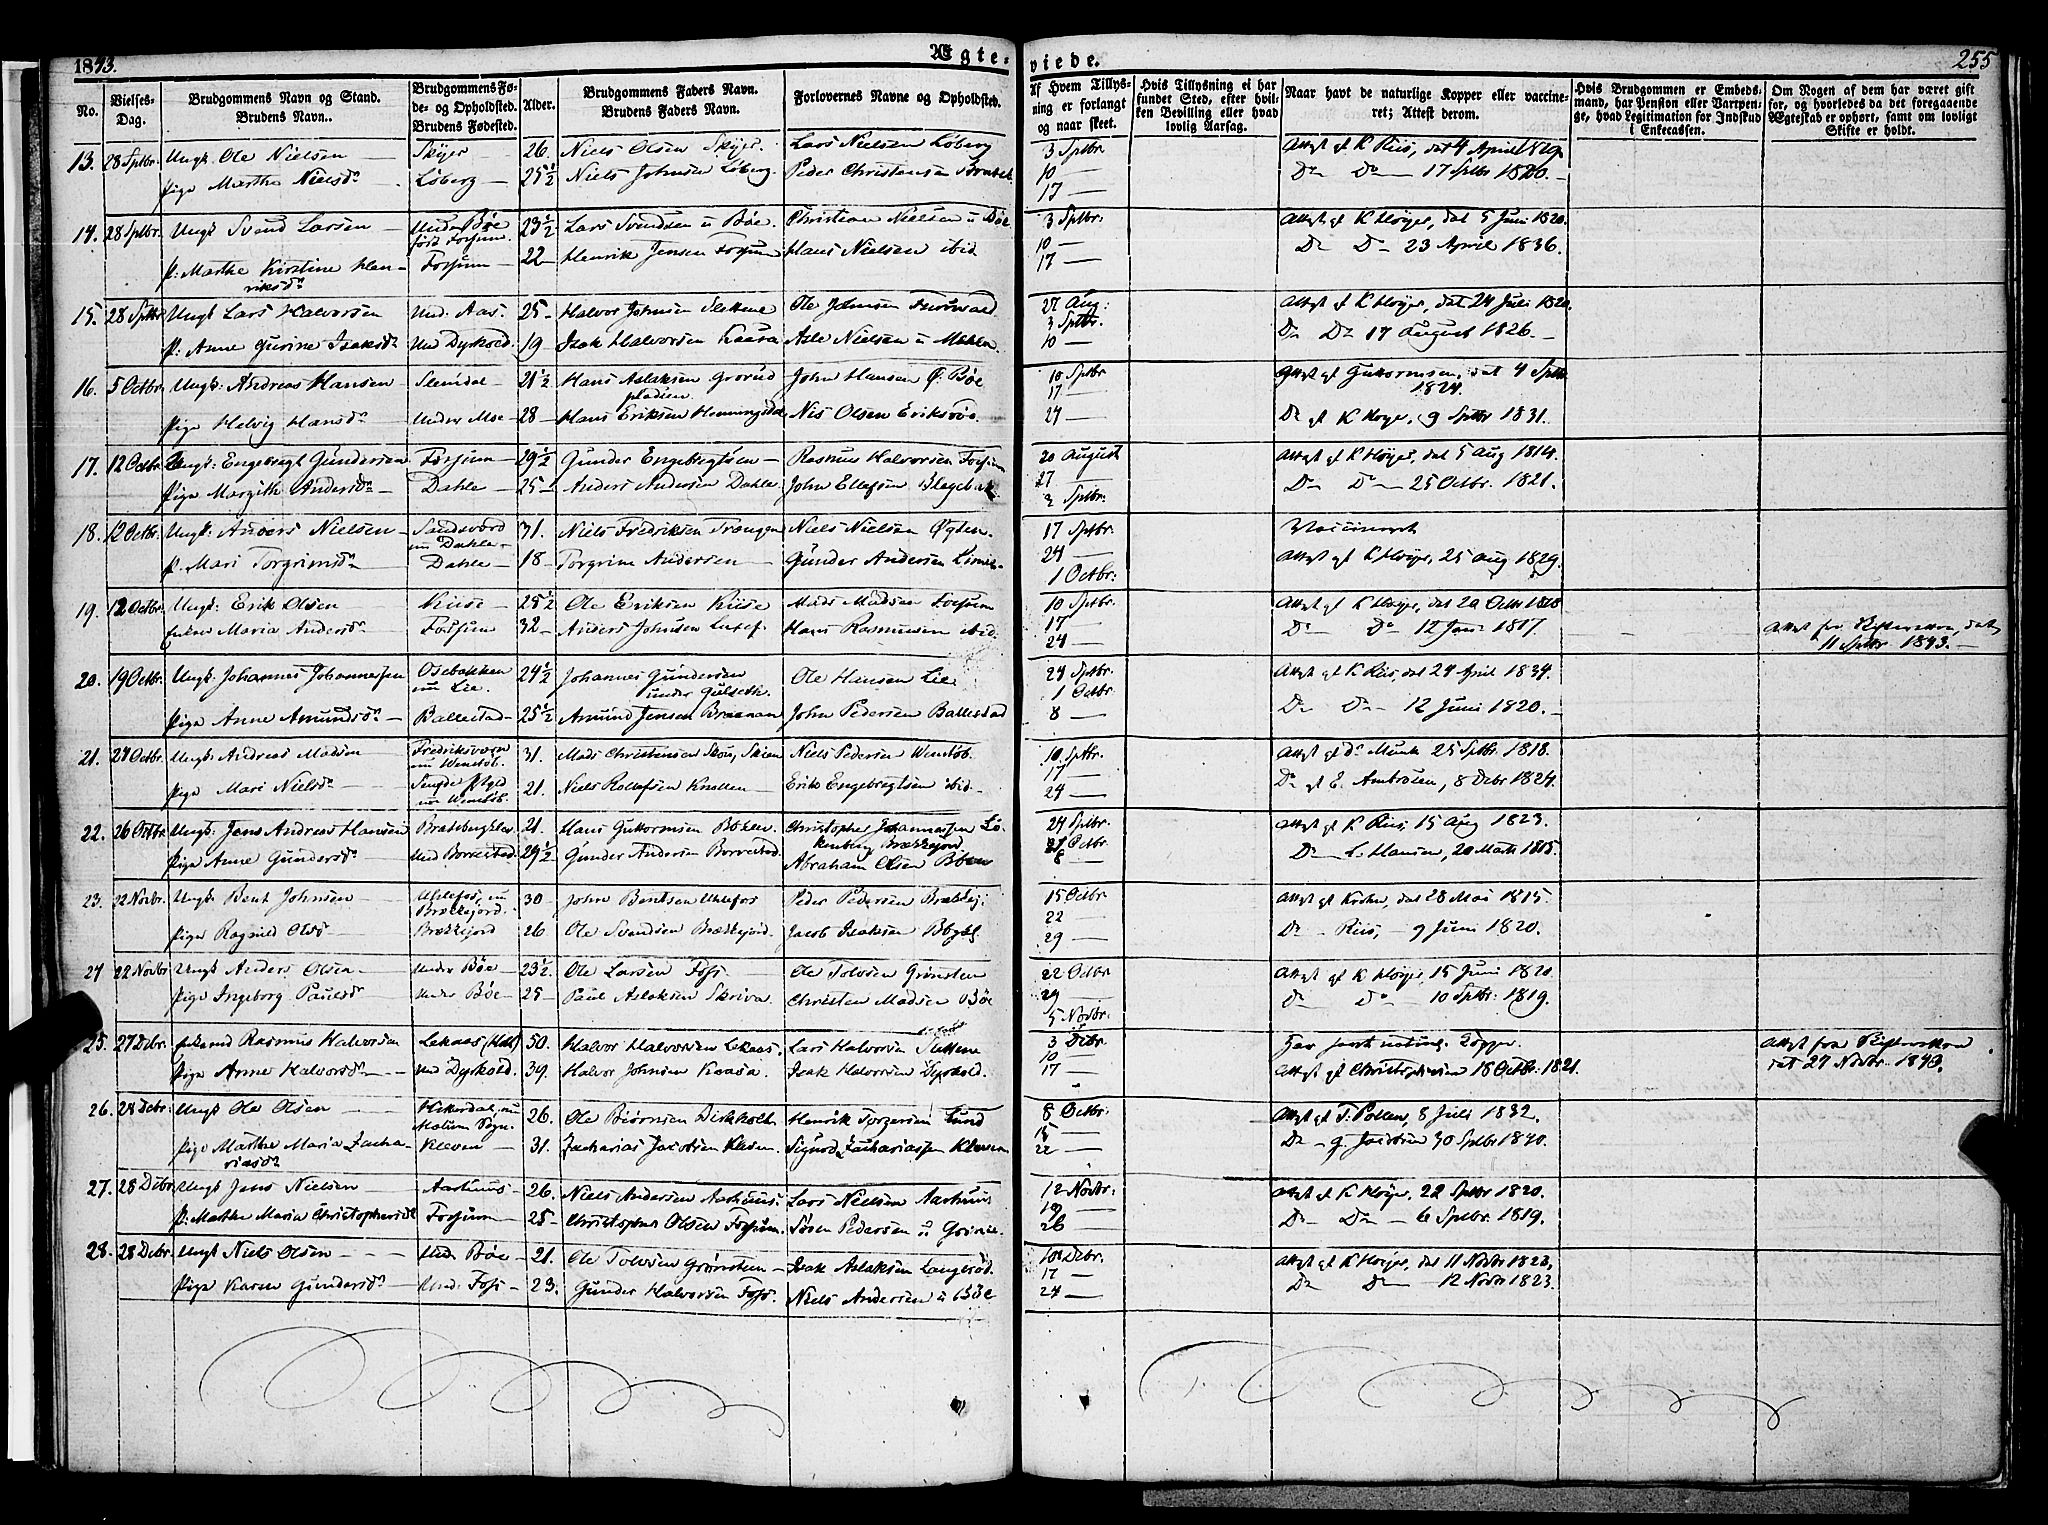 1843.
Ægte-
viede.
255
No.
Vielses-
Dag.
Brudgommens Navn og Stand.
Brudens Navn.
Brudgommens Fø-
de- og Opholdsted.
Brudens Fødested.
Alder.
Brudgommens Faders Navn.
Brudens Faders Navn.
Forlovernes Navne og Opholdsted.
Af Hvem Tillys-
ning er forlangt
og naar skeet.
Hvis Tillysning ei har
fundet Sted, efter hvil-
ken Bevilling eller hvad
lovlig Aarsag.
Naar havt de naturlige Kopper eller vaccine-
ret; Attest derom.
Hvis Brudgommen er Embeds-
mand, har Pension eller Vartpen-
ge, hvad Legitimation for Indskud
i Enkecassen.
Om Nogen af dem har været gift
før, og hvorledes da det foregaaende
Ægteskab er ophørt, samt om lovligt
Skifte er holdt.
13. 28 Sptbr. Ungk. Ole Nielsen Skyer 26. Niels Olsen Skyer. Lars Nielsen Løberg 3 Sptbr. Attest af K Riis, dat 4 April 1819.
Pige Marthe Nielsd. Løberg 25½ Niels Johnsen Løberg. Peder Christensen 10 — D° D° 17 Sptbr 1820.
17 —
14. 28 Sptbr. Ungk Svend Larsen Under Bøe 23½ Lars Svendsen u Bøe. Christian Nielsen u Bøe 3 Sptbr: Attest af K Høyer, dat 5 Juni 1820.
født Forsum. 10 —
P: Marthe Kirstine Hen- Forsum 22 Henrik Jensen Forsum Hans Nielsen ibid 17 — D° D° 23 April 1836.
riksd.
15. 28 Sptbr Ungk Lars Halvorsen Und. Aas. 25 Halvor Johnsen Slettene Ole Johnsen 27 Aug: Attest af K Høyer, dat 24 Juli 1820.
3 Sptbr.
P: Anne Gurine Isaksd. Und Dyrkold. 19 Isak Halvorsen Kaasa Asle Nielsen u 10 — D° D° 17 August 1826.
16. 5 Octbr. Ungk: Andreas Hansen 21½ Hans Aslaksen Grorud John Hansen Ø: Bøe 10 Sptbr Attest af Guttormsen, dat 4 Sptbr
pladsen. 17 — 1824.
Pige Helvig Hansd. Under Moe 28 Hans Eriksen Nis Olsen Eriksrøe. 24 — D° af K Høyer, 9 Sptbr 1831.
17. 12 Octbr. Ungk: Engebregt Gundersen Forsum 29½ Gunder Engebregtsen Rasmus Halvorsen Forsum 20 August Attest af K Høyer, dat 5 Aug 1814.
Pige Margith Andersd. Dahle 25 Anders Andersen Dahle. John Ellefsen 27 — D° D° 25 Octbr. 1821.
3 Sptbr:
18. 12 Octbr. Ungk: Anders Nielsen Sandsværd 31. Niels Fredriksen Niels Nielsen 17 Sptbr Vaccineret
nu Dahle 24 —
P. Mari Torgrimsd. Dahle 18 Torgrim Andersen Gunder Andersen 1 Octbr: Attest af K Høyer, 25 Aug 1829.
19. 12 Octbr: Ungk: Erik Olsen Kiise 25½ Ole Eriksen Kiise Mads Madsen Forsum 10 Sptbr. Attest af K Høyer, dat 20 Octbr 1818
Enke Maria Andersd. Forsum 32 Anders Johnsen Hans Rasmussen ibid. 17 — D° D° 12 1817. Attest fra Skifteretten, dat
24 — 11 Sptbr 1843.
20. 19 Octbr. Ungk: Johannes Johannesen Osebakken 24½ Johannes Gundersen Ole Hansen Lie 24 Sptbr. Attest af K Riis, dat 24 April 1834.
nu Lie. under Gulseth. 1 Octbr
Pige Anne Amundsd. Ballestad 25½ Amund Jensen John Pedersen Ballestad 8 — D° D° 12 Juni 1820.
21. 24 Octbr. Ungk: Andreas Madsen Fredriksværn 31. Mads Christensen Skou, Skien Niels Pedersen Wenstøb. 10 Sptbr. Attest af Dr Munk 25 Sptbr. 1818.
nu Wenstøb. 17 —
Pige Mari Nielsd. 21. Niels Rollefsen Knollen Erik Engebregtsen ibid. 24 — D° af E. Ambrosen, 8 Debr 1824.
nu Wenstøb.
22. 26 Octbr Ungk: Jens Andreas Hansen Bratsbergklev 21. Hans Guttormsen Christopher Johannesen Lø- 24 Sptbr. Attest af K Riis, 15 Aug 1823.
Brækkejord Octbr.
Pige Anne Gundersd. Und Borrestad 29½ Gunder Andersen Borrestad. Abraham Olsen 8 — D° L. Hansen, 20 Marts 1815.
23. 22 Novbr. Ungk: Bent Johnsen Ulefos, nu 30 John Bentsen Ulefos Peder Pedersen Brækkej: 15 Octbr Attest af Krohn, dat 28 Mai 1815.
Brækkejord. 22 —
Pige Ragnild Olsd Brækkejord 26 Ole Svendsen Brækkejord. Jacob Isaksen 29 — D° Riis, 9 Juni 1820.
24 22 Novbr Ungk Anders Olsen Under Bøe 23½ Ole Larsen Foss Ole Tolvsen Grønsten 22 Octbr Attest af K Høyer, 15 Juni 1820.
Pige Ingeborg Paulsd. Under Bøe 25 Paul Aslaksen Skrivar. Christen Madsen Bøe 29 — D° D° 10 Sptbr: 1819.
5 Novbr:
25. 27 Debr. Enkemd Rasmus Halvorsen Lekaas 50. Halvor Halvorsen Lekaas. Lars Halvorsen 3 Debr. Har havt naturlige Kopper. Attest fra Skifteretten
10 — dat 27 Novbr. 1843.
Pige Anne Halvorsd. Und Dyrkold. 39. Halvor Johnsen Kaasa. Isak Halvorsen Dyrkold. 17 — Attest af Christophersen 18 Octbr. 1821.
26. 28 Debr. Ungk Ole Olsen Hitterdal, nu 26. Ole Biørnsen Birkholt Henrik Torgersen Lund 8 Octbr. Attest af T. Pollen, 8 Juli 1832.
Melum Sogn. 15 —
Pige Marthe Maria Zacha- Kleven 31. Zacharias Jacobsen Kleven. Sigurd Zachariassen Kleven 22 — D° g. Jacobsen 30 Sptbr 1840.
riasd.
27. 28 Debr. Ungk Jens Nielsen Aarhuus 26. Niels Andersen Aarhuus. Lars Nielsen Aarhuus. 12 Novbr: Attest af K Høyer, 22 Sptbr 1820.
19 —
P: Marthe Maria Christophersd. Forsum 25 Christopher Olsen Forsum. Søren Pedersen u 26 — D° D° 6 Sptbr. 1819.
28. 28 Debr. Ungk Niels Olsen Und. Bøe 21. Ole Tolvsen Grønsten Isak Aslaksen Langerød. 10 Debr. Attest af K Høyer, dat 11 Novbr 1823,
17 —
Pige Karen Gundersd. Und. Foss 23. Gunder Halvorsen Foss. Niels Andersen u Bøe 24 — D° D° 12 Novbr 1823.